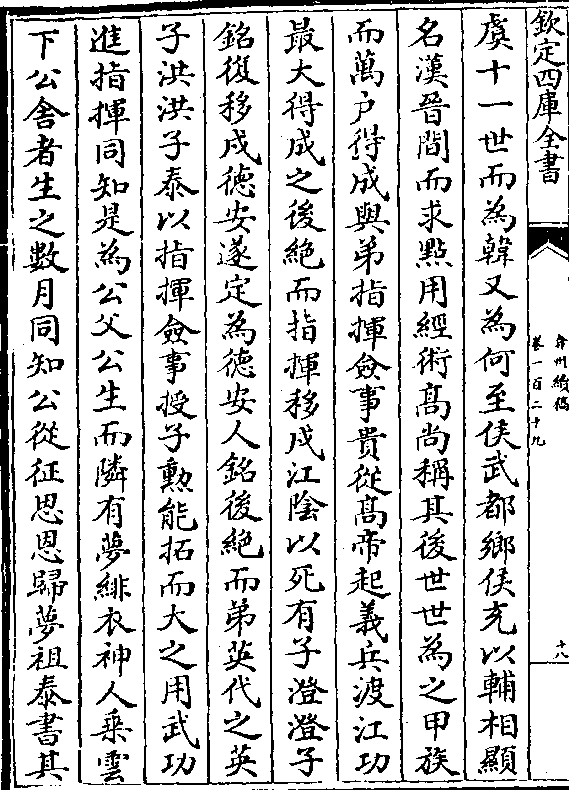 欽定四庫全書
弇州續稿
卷一百二十九
十八
虞十一世而為韓又為何至侯武都鄉侯充以輔相顯
名漢晉間而求㸃用經術髙尚稱其後世世為之甲族
而萬户得成與弟指揮僉事貴從髙帝起義兵渡江功
最大得成之後絶而指揮移戍江隂以死有子澄澄子
銘復移戍德安遂定為德安人銘後絶而弟英代之英
子洪洪子泰以指揮僉事授子勲能拓而大之用武功
進指揮同知是為公父公生而隣有夢緋衣神人乘雲
下公舍者生之數月同知公從征思恩歸夢祖泰書其